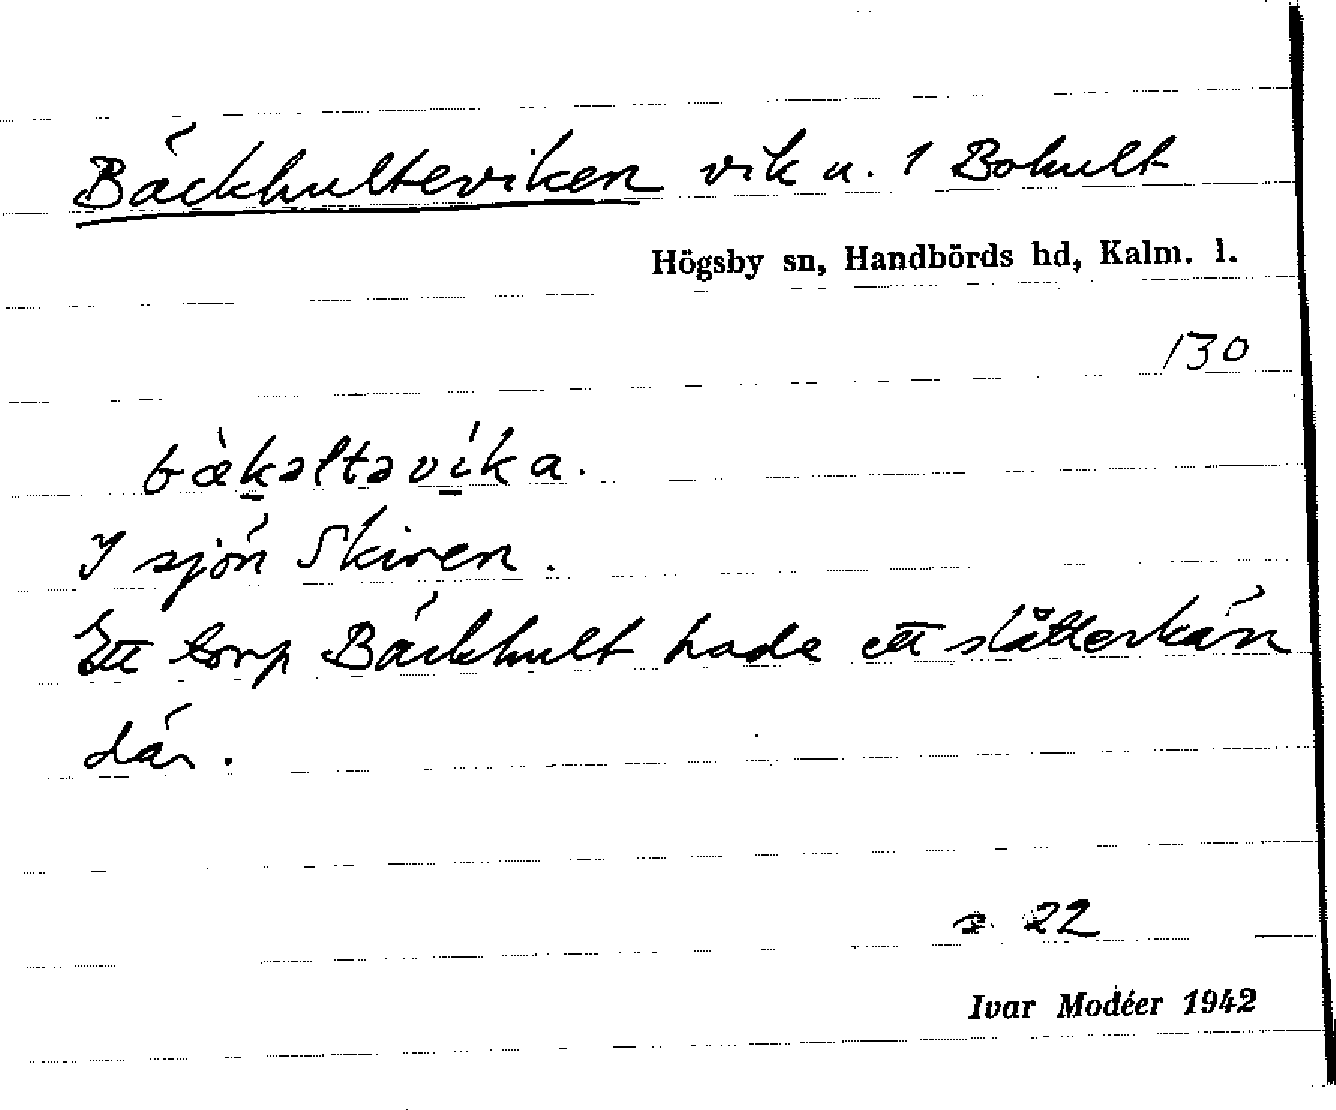 Bäckhulteviken vik u. 1 Bohult
Högsby sn, Handbörds hd, Kalm. l.
130
bæ̀kəltəvíka.
I sjön Skiren.
Ett torp Bäckhult hade ett slåtterkärr
där.
s. 22
Ivar Modéer 1942